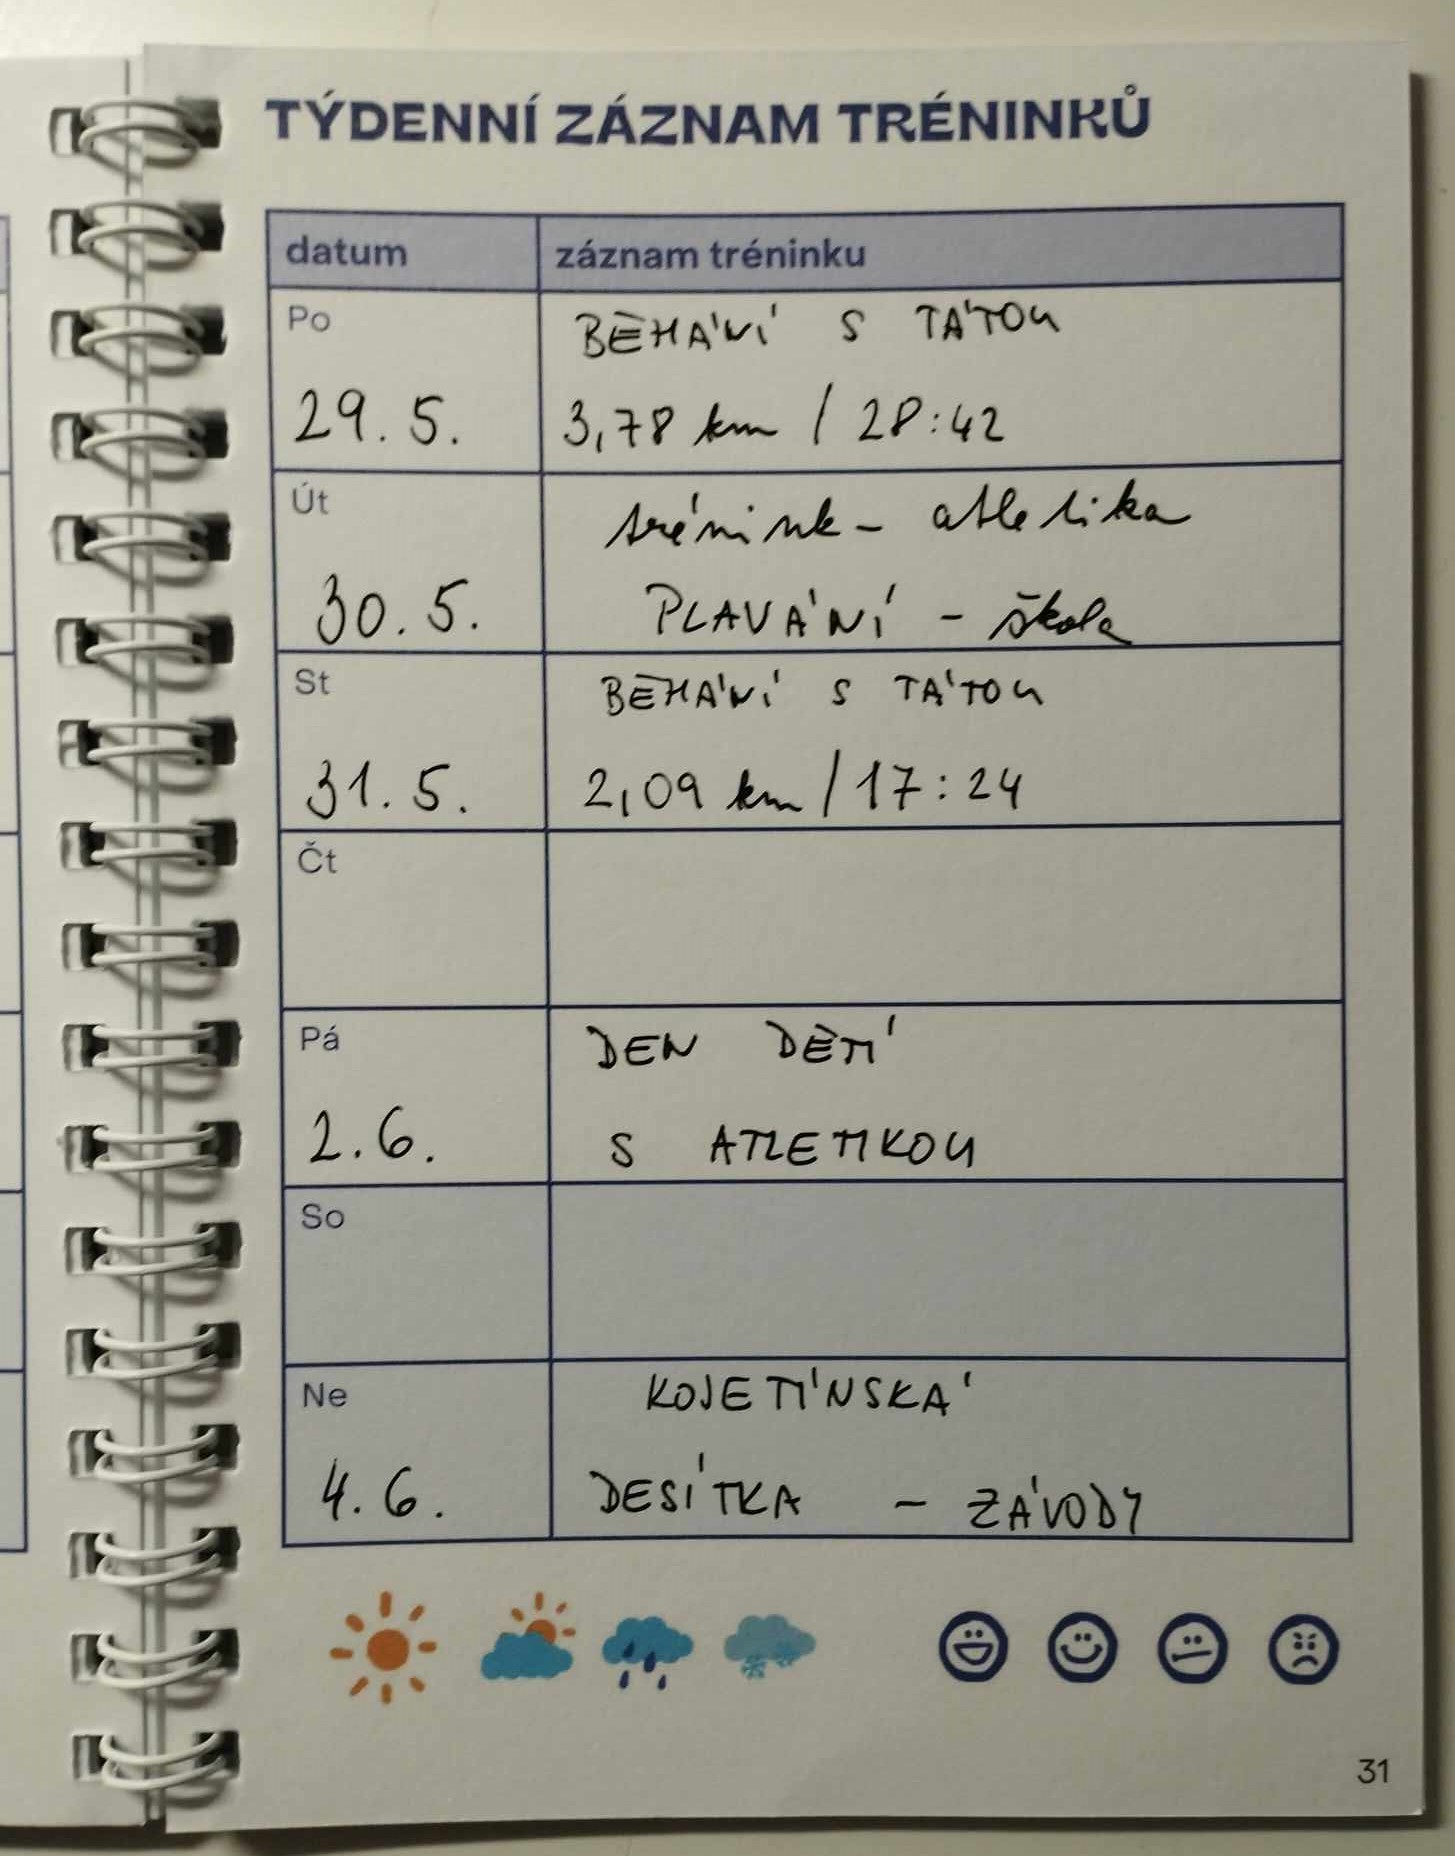 TÝDENNÍ ZÁZNAM TRÉNINKŮ
datum záznam tréninku
Po BĚHÁNÍ S TÁTOU
29. 5. 3,78 km / 28:42
Út trénink - atletika
30. 5. PLAVÁNÍ - škola
St BĚHÁNÍ S TÁTOU
31. 5. 2,09 km / 17:24
Čt
Pá DEN DĚTÍ
2. 6. S ATLETIKOU
So
Ne KOJETÍNSKÁ
4. 6. DESÍTKA - ZÁVODY
31